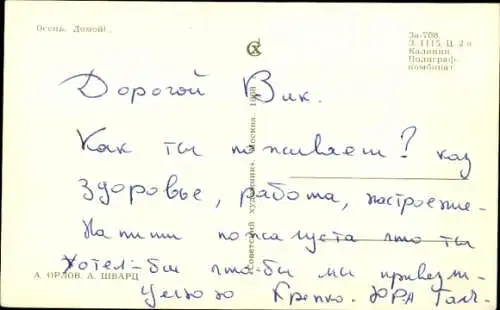 Осень. Домой!
За-708.
З. 1115. Ц. 2 к.
Калинин
Полиграф-
комбинат
Дорогой Вик.
Как ты поживаеш? каг
здоровье, работа, настроение-
Напиши пожалуста что ты
хотел-бы что-бы мы привезли-
Целую Крепко. ЮРА
А. ОРЛОВ. А. ШВАРЦ
«Советский художник». Москва. 1968